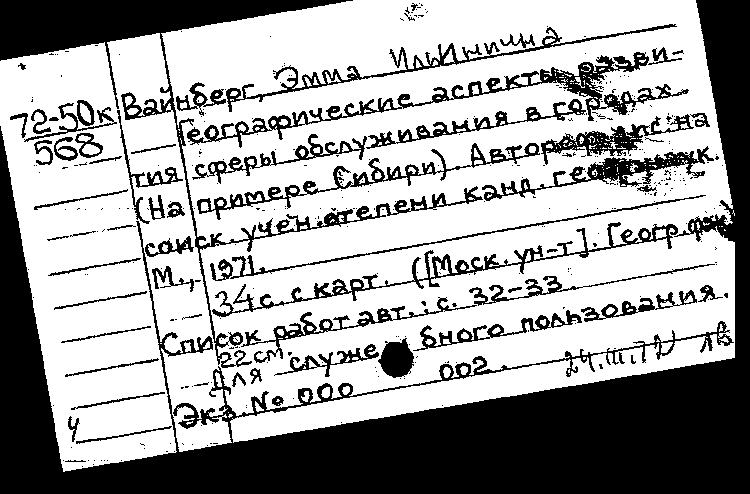 72-50к
568
Вайнберг, Эмма Ильинична
Географические аспекты разви-
тия сферы обслуживания в городах
(На примере Сибири). Автореф. дис. на
соиск. учен. степени канд. геогр. наук.
М., 1971.
34 с. с карт. ([Моск. ун-т]. Геогр. фак)
Список работ авт.: с. 32-33.
22 см.
Для служебного пользования.
Экз. № 000 002.
24.III.72 ЛВ
4